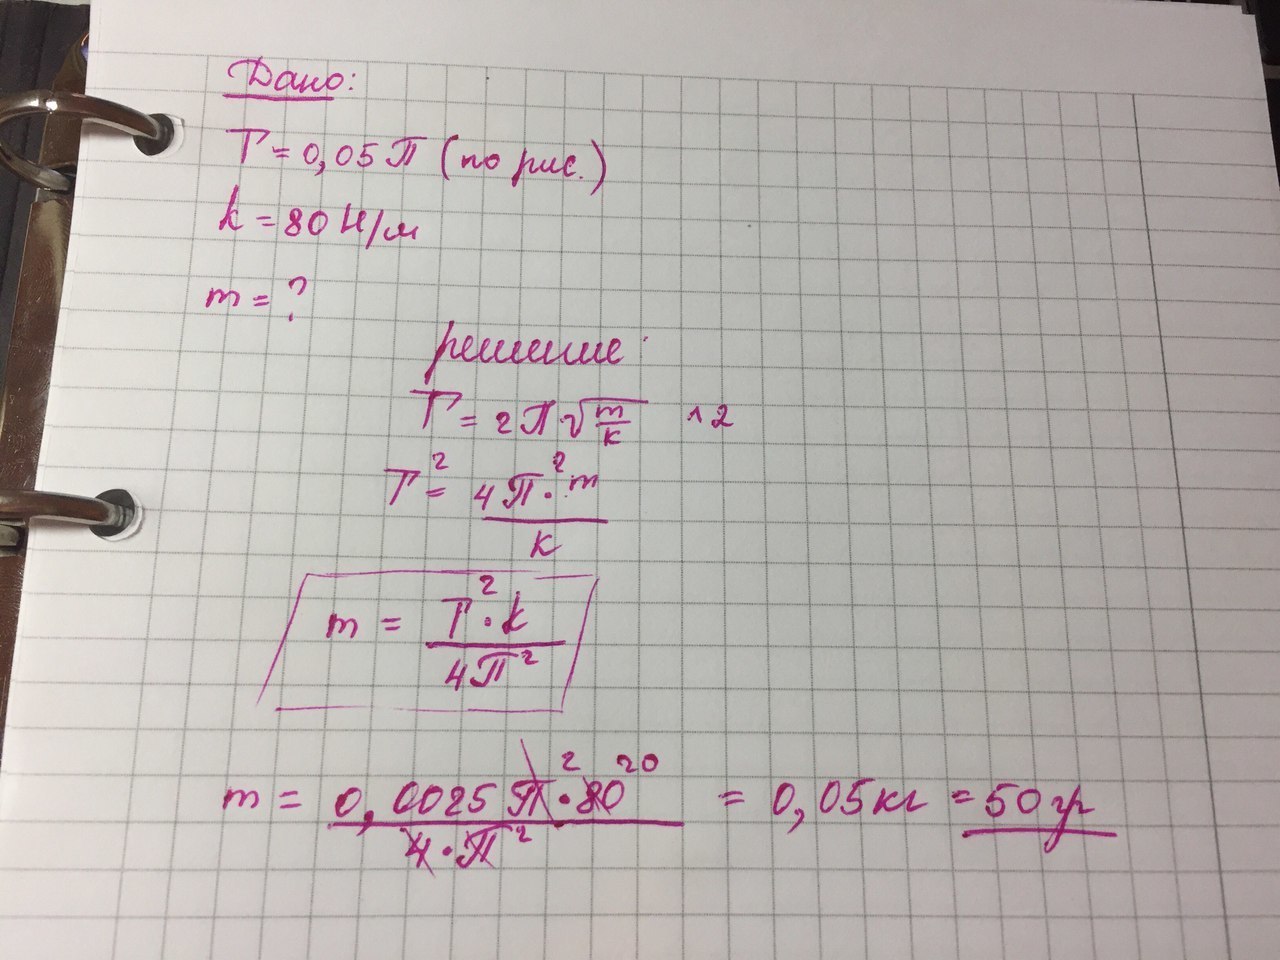 Дано:
T = 0,05 П (по рис.)
k = 80 Н/м
m = ?
решение:
T = 2П√(m/k) ^2
T² = 4П²·m / k
m = T²·k / 4П²
m = 0,0025 П²·80 20 / 4·П² = 0,05 кг = 50 гр